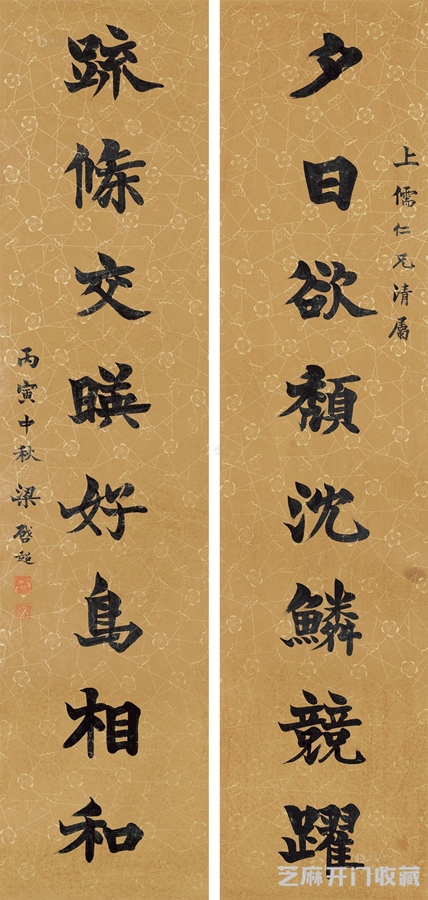 上儒仁兄清属
夕日欲頹沈鱗競躍
疏條交暎好鳥相和
丙寅中秋梁啓超
芝麻开门收藏